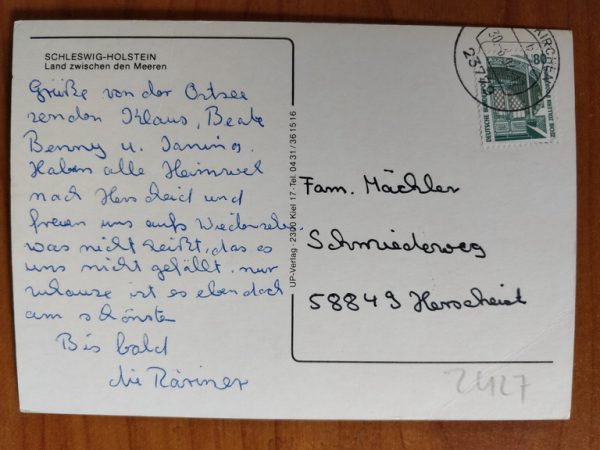 SCHLESWIG-HOLSTEIN
Land zwischen den Meeren
Grüße von der Ostsee
senden Klaus, Beate
Benny u. Janina.
Haben alle Heimweh
nach Herscheid und
freuen uns aufs Wiedersehn.
was nicht heißt, das es
uns nicht gefällt. nur
zuhause ist es eben doch
am schönsten
Bis bald
die
UP-Verlag · 2300 Kiel 17 · Tel. 04 31 / 36 15 16
80
DEUTSCHE BUNDESPOST
23775
Fam. Mächler
Schmiedeweg
58849 Herscheid
2427